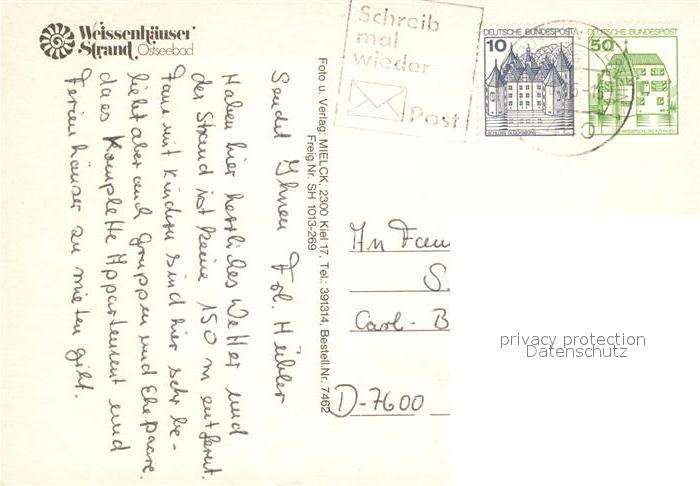 Weissenhäuser
Strand Ostseebad
Haben hier herrliches Wetter und
der Strand ist keine 150 m entfernt.
Fam. mit Kindern sind hier sehr be-
liebt aber auch Gruppen und Ehepaare.
da es komplette Appartement und
Ferienhäuser zu mieten gibt.
Sendet Ihnen Frl. Hübler
Foto u. Verlag: MIELCK, 2300 Kiel 17, Tel.: 391314, Bestell.Nr. 7462
Freig.Nr. SH 1013-269
Schreib
mal
wieder
Post
DEUTSCHE BUNDESPOST
10
SCHLOSS GLÜCKSBURG
DEUTSCHE BUNDESPOST
50
An Fam
S.
Carl- B
D-7600
privacy protection
Datenschutz